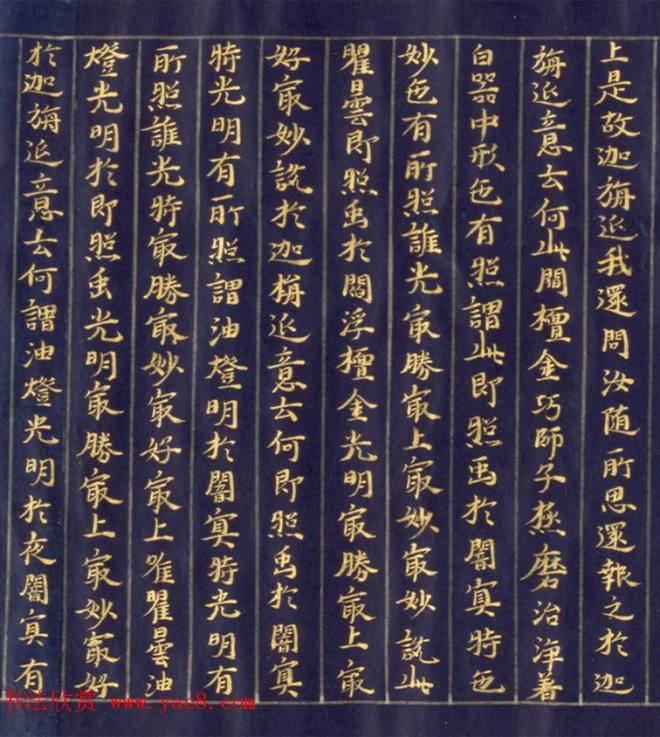 上是故迦旃延我還問汝随所思還報之於迦
旃延意云何此閻檀金巧師子熬磨治淨著
白器中形色有照謂此即照禹於闇冥時色
妙色有所照誰光㝡勝㝡上㝡妙㝡妙說此
瞿曇即照禹於閻浮檀金光明㝡勝㝡上㝡
好㝡妙說於迦旃延意云何即照禹於闇冥
時光明有所照謂油燈明於闇冥時光明有
所照誰光時㝡勝㝡妙㝡好㝡上唯瞿曇油
燈光明於即照禹光明㝡勝㝡上㝡妙㝡好
於迦旃延意云何謂油燈光明於夜闇冥有
书法欣赏 www.yac8.com